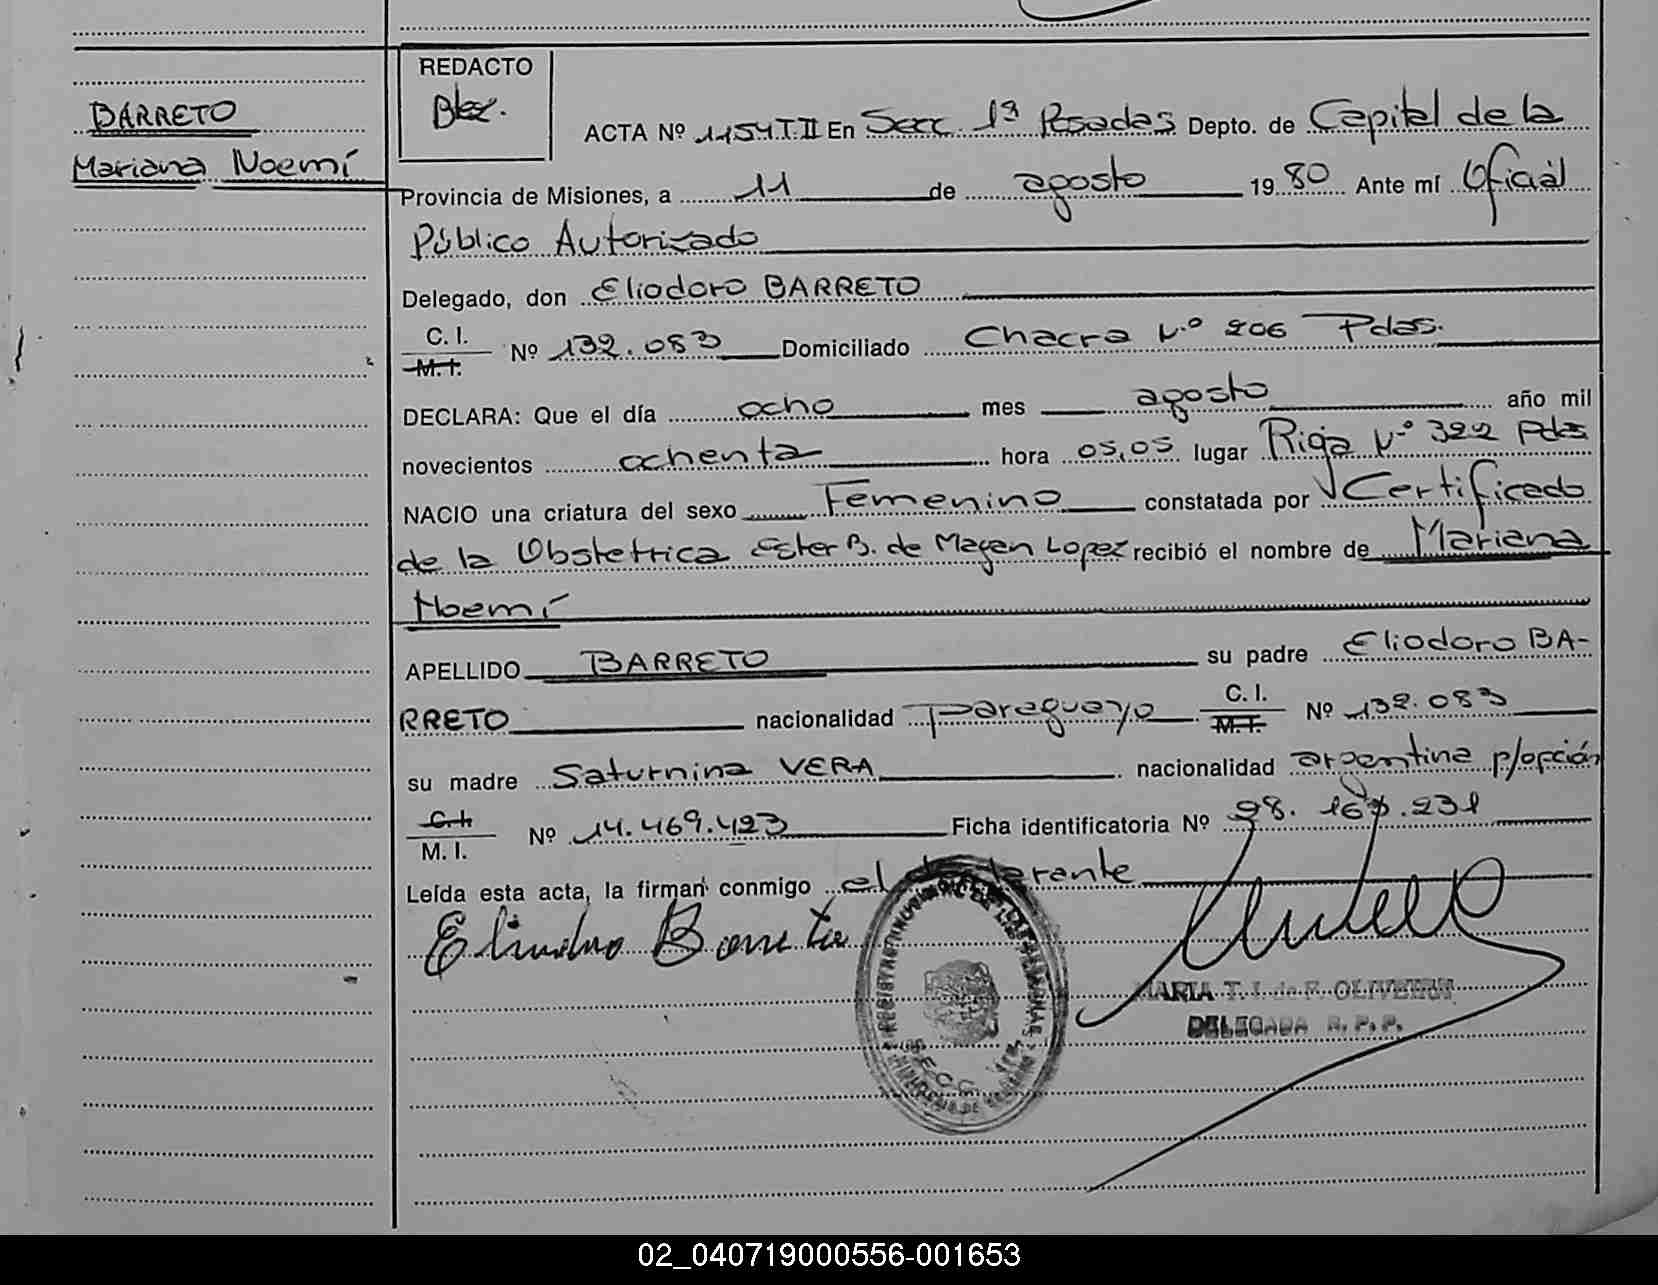 BARRETO
Mariana Noemí
REDACTO
ACTA Nº 1154 T.II En Secc. 1ª Posadas Depto. de Capital de la
Provincia de Misiones, a 11 de agosto 1980 Ante mí Oficial
Público Autorizado
Delegado, don Eliodoro BARRETO
C. I.
M. I. Nº 132.083 Domiciliado Chacra Nº 206 Pdas.
DECLARA: Que el día ocho mes agosto año mil
novecientos ochenta hora 05,05 lugar Rioja Nº 322 Pdas
NACIO una criatura del sexo Femenino constatada por Certificado
de la Obstetrica Ester B. de Mayen Lopez recibió el nombre de Mariana
Noemí
APELLIDO BARRETO su padre Eliodoro BA-
RRETO nacionalidad paraguayo C. I. M. I. Nº 132.083
su madre Saturnina VERA nacionalidad argentina p/opción
C. I.
M. I. Nº 14.469.423 Ficha identificatoria Nº 28.
Leída esta acta, la firman conmigo el declarante
Eliodoro Barreto
MARIA T. I. de F. OLIVEIRA
DELEGADA R. P. P.
02_040719000556-001653